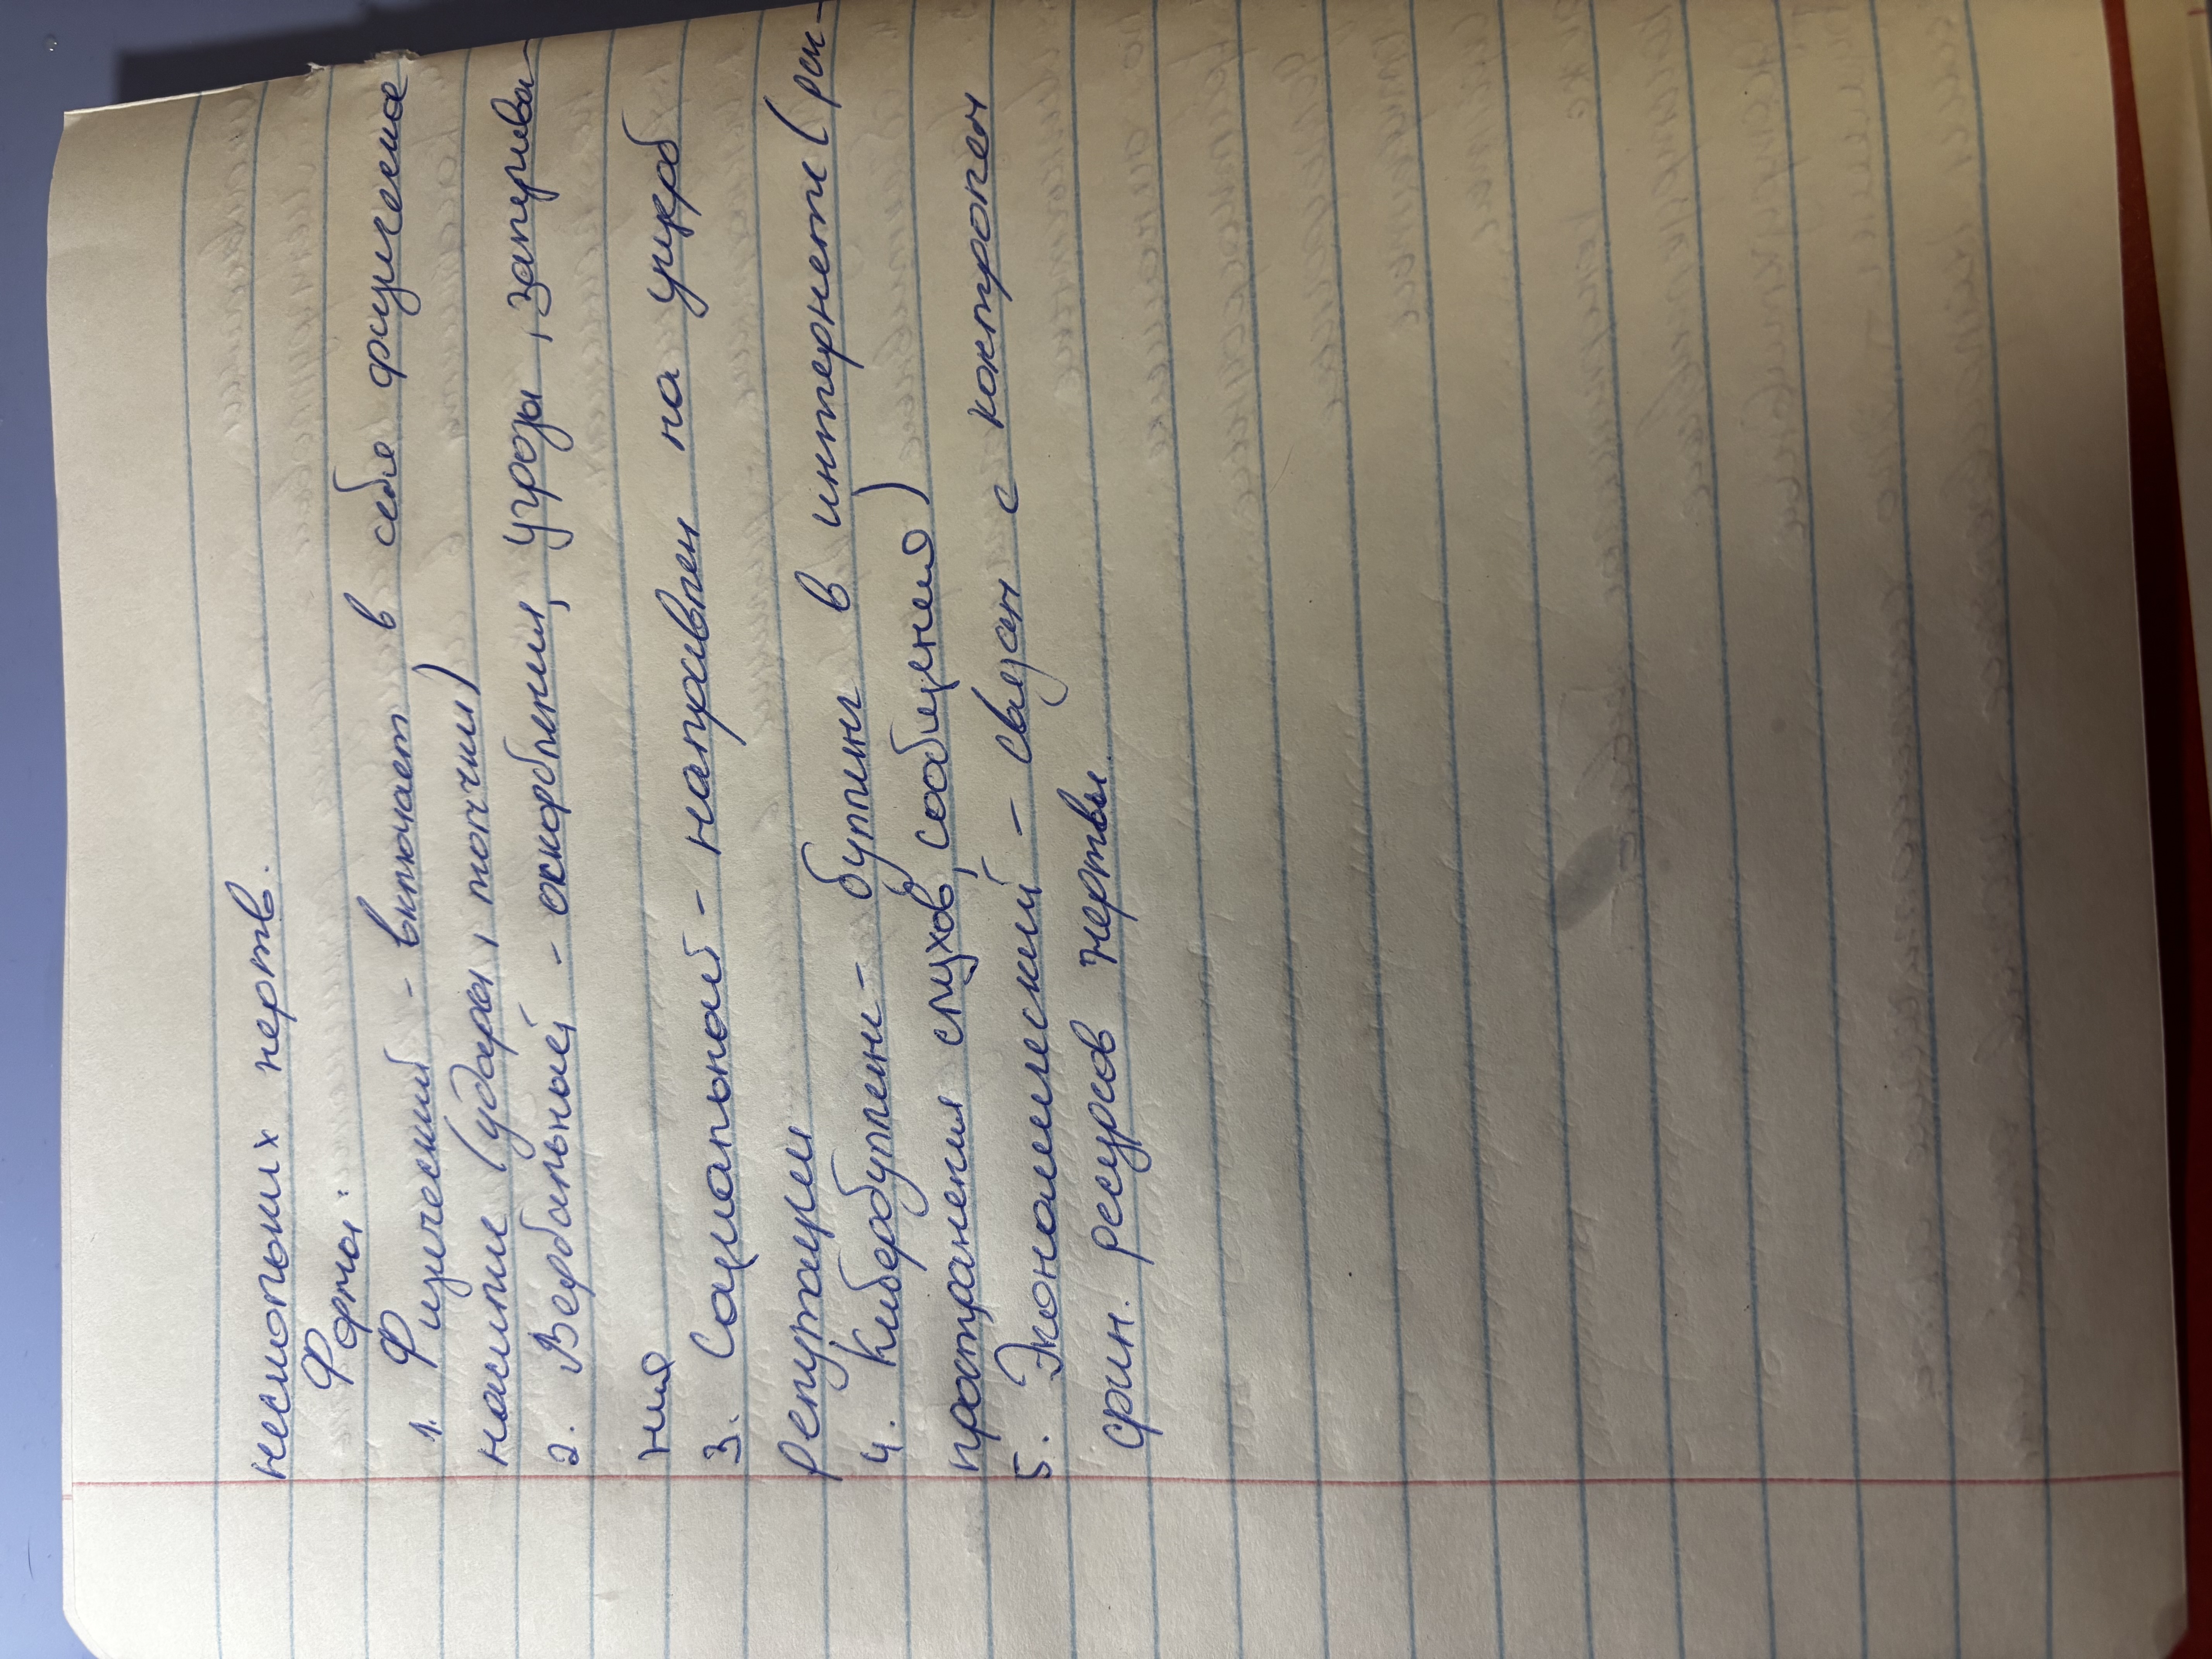 нескольких жертв.
Формы:
1. Физический - включает в себя физическое
насилие (удары, толчки)
2. Вербальный - оскорбления, угрозы, запугива-
ния
3. Социальный - направлен на ущерб
репутации
4. Кибербуллинг - буллинг в интернете (рас-
пространения слухов, сообщения)
5. Экономический - связан с контролем
фин. ресурсов жертвы.